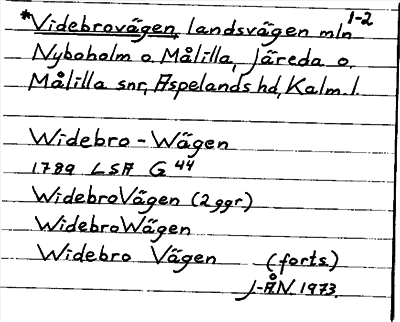 1-2
*Videbrovägen, landsvägen mln
Nyboholm o. Målilla, Järeda o.
Målilla snr, Aspelands hd, Kalm. l.
Widebro-Wägen
1789 LSA G 44
WidebroVägen (2 ggr)
WidebroWägen
Widebro Vägen (forts.)
J-Å.N. 1973.